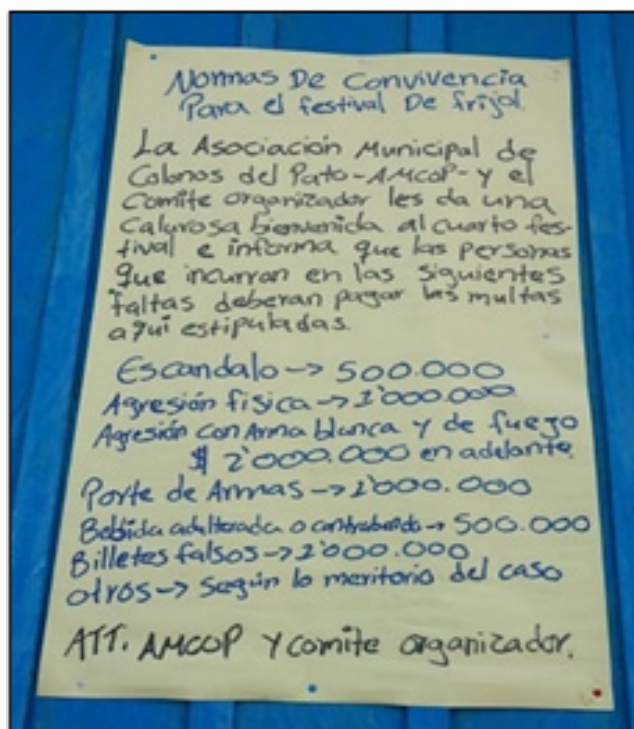 Normas De Convivencia
Para el festival De frijol.
La Asociación Municipal de
Colonos del Pato-AMCOP-y el
Comite organizador les da una
calurosa bienvenida al cuarto fes-
tival e informa que las personas
que incurran en las siguientes
faltas deberan pagar las multas
aqui estipuladas.
Escandalo -> 500.000
Agresión fisica -> 1'000.000
Agresión con Arma blanca y de fuego
$ 2'000.000 en adelante.
Porte de Armas -> 1'000.000
Bebida adulterada o contrabando -> 500.000
Billetes falsos -> 1'000.000
otros -> según lo meritorio del caso
ATT. AMCOP y comite organizador.